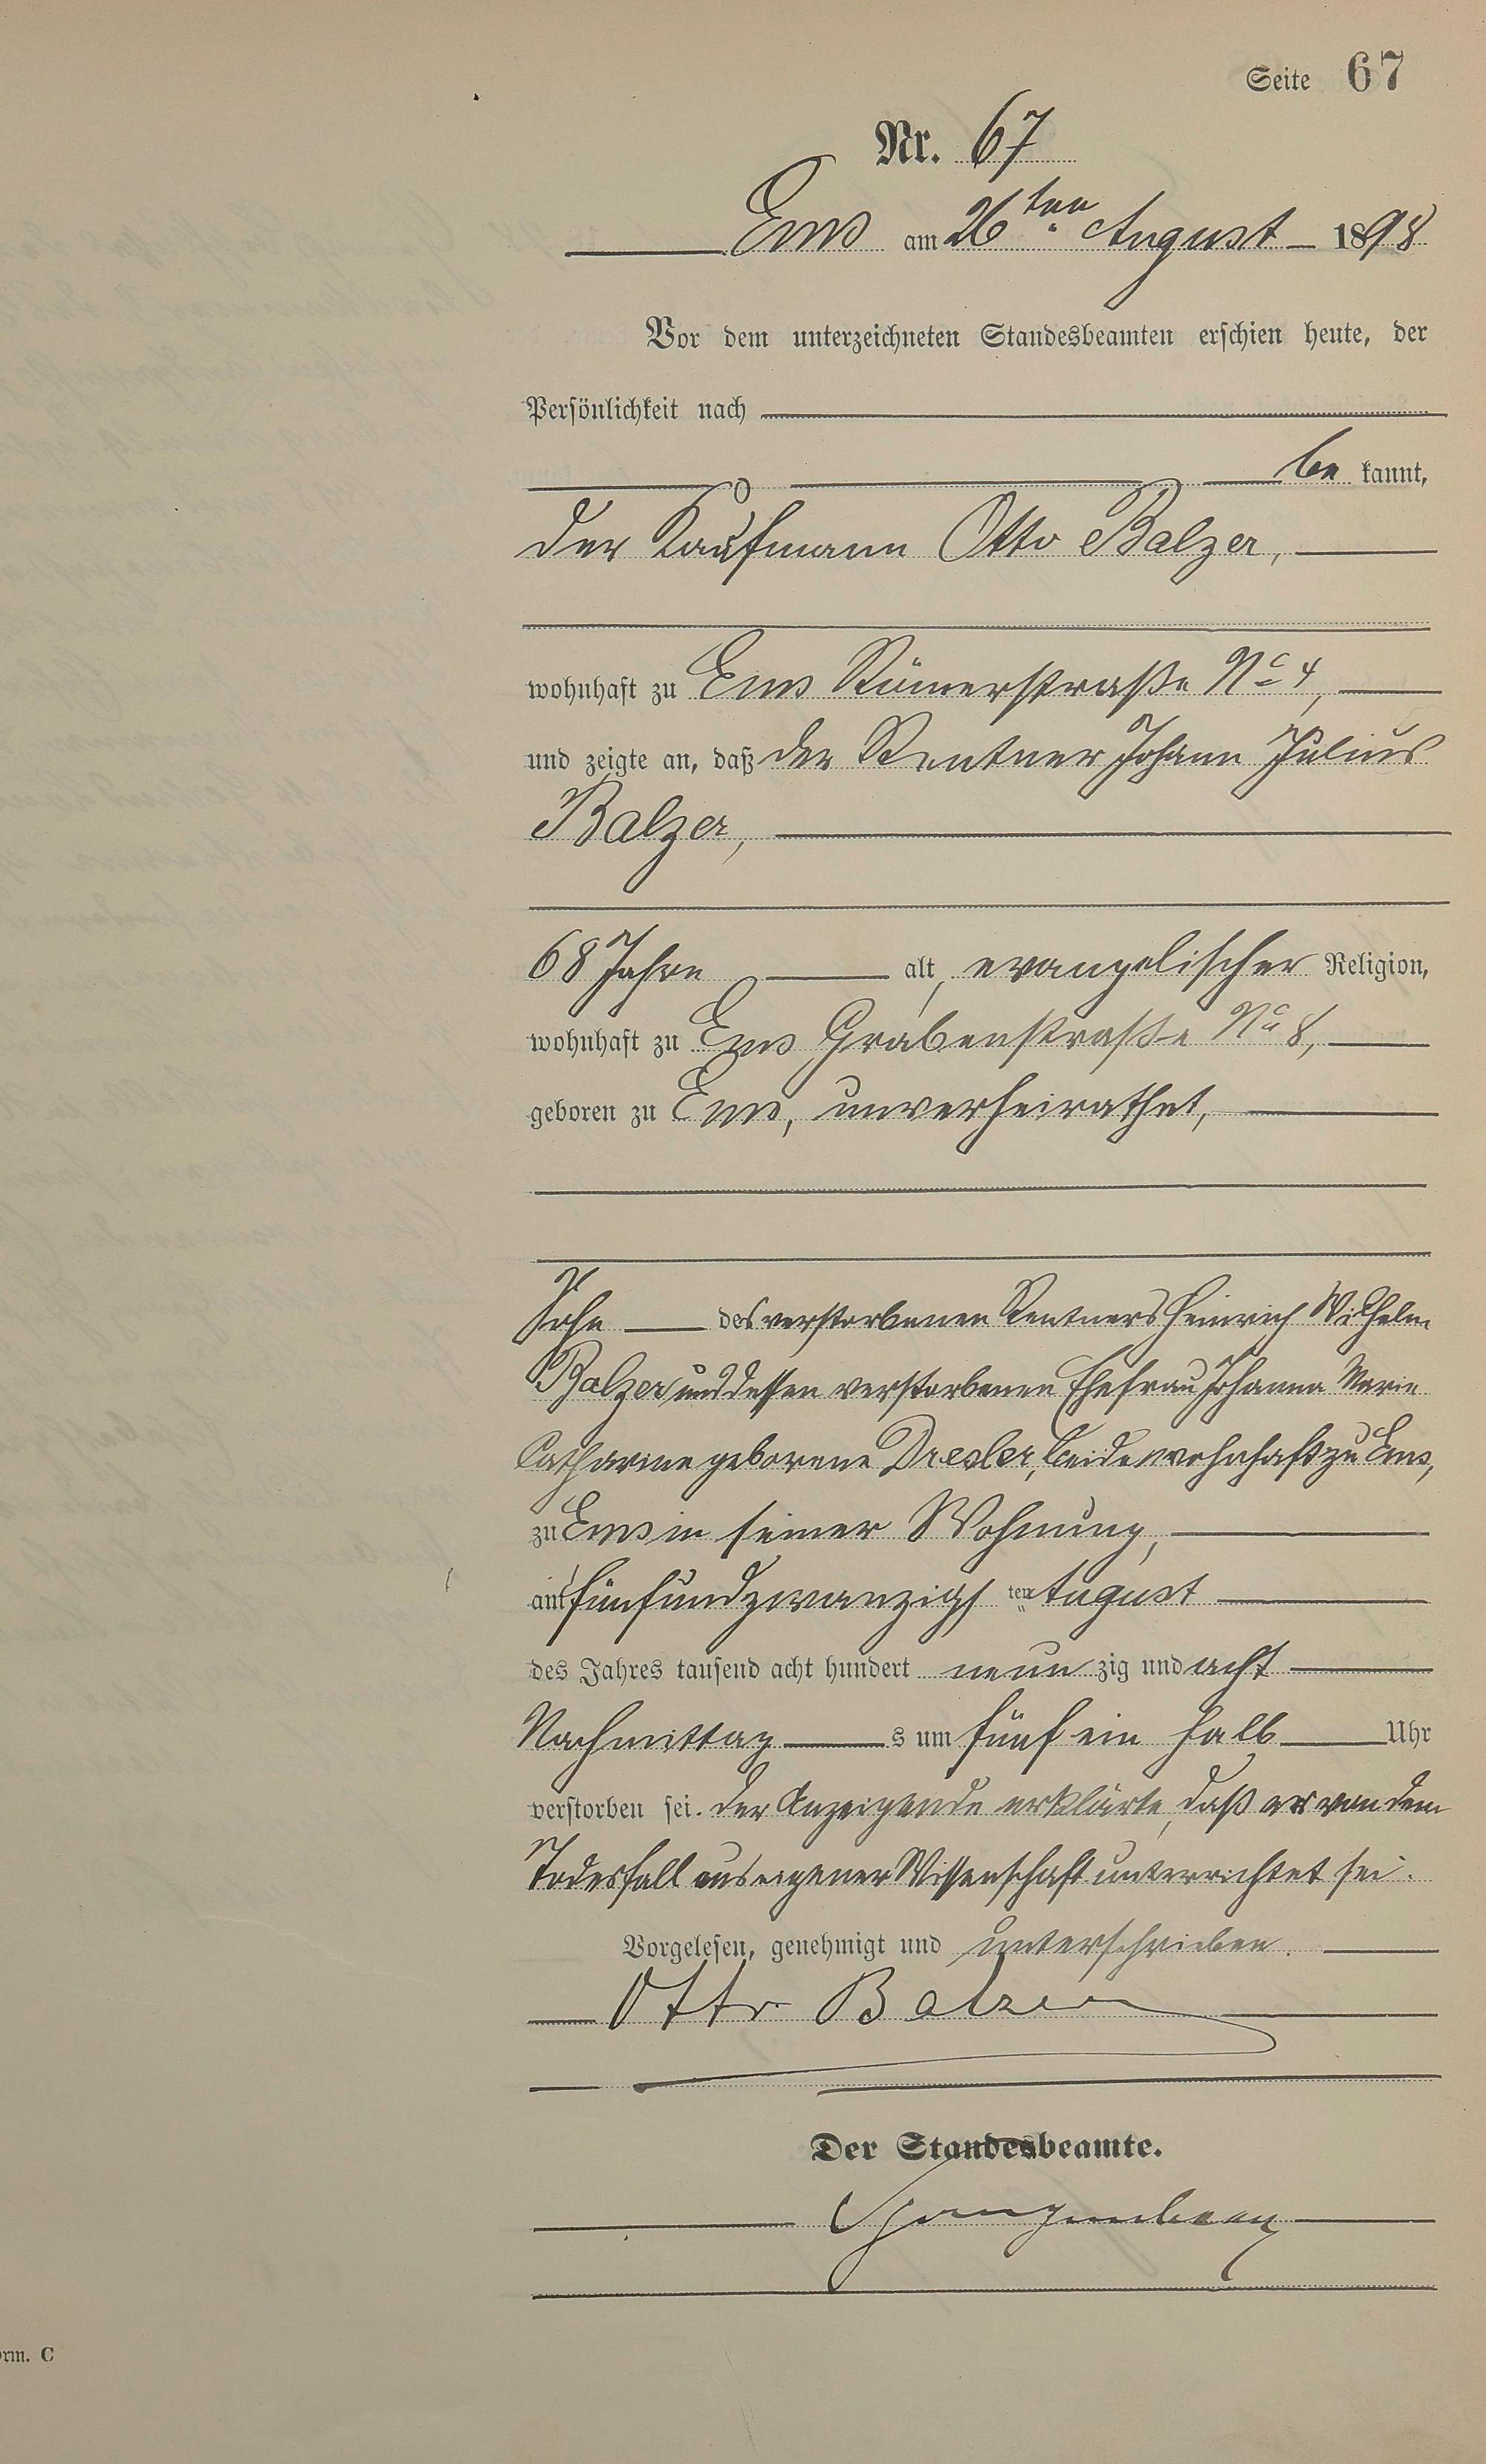 Seite 67
Nr. 67
Ems am 26ten August 1898
Vor dem unterzeichneten Standesbeamten erschien heute, der
Persönlichkeit nach
be kannt,
der Kaufmann Otto Balzer,
wohnhaft zu Ems Römerstraße No 4,
und zeigte an, daß der Rentner Johann Julius
Balzer,
68 Jahre alt, evangelischer Religion,
wohnhaft zu Ems, Grabenstraße No 8,
geboren zu Ems, unverheirathet,
Sohn des verstorbenen Rentners Heinrich Wilhelm
Balzer und dessen verstorbenen Ehefrau Johanna Marie
Catharine geborene Dresler, beide wohnhaft zu Ems,
zu Ems in seiner Wohnung,
am fünfundzwanzigsten August
des Jahres tausend acht hundert neun zig und acht
Nachmittag s um fünf ein halb Uhr
verstorben sei. Der Anzeigende erklärte, daß er von dem
Todesfall aus eigener Wissenschaft unterrichtet sei.
Vorgelesen, genehmigt und unterschrieben.
Otto Balzer
Der Standesbeamte.
orm. C